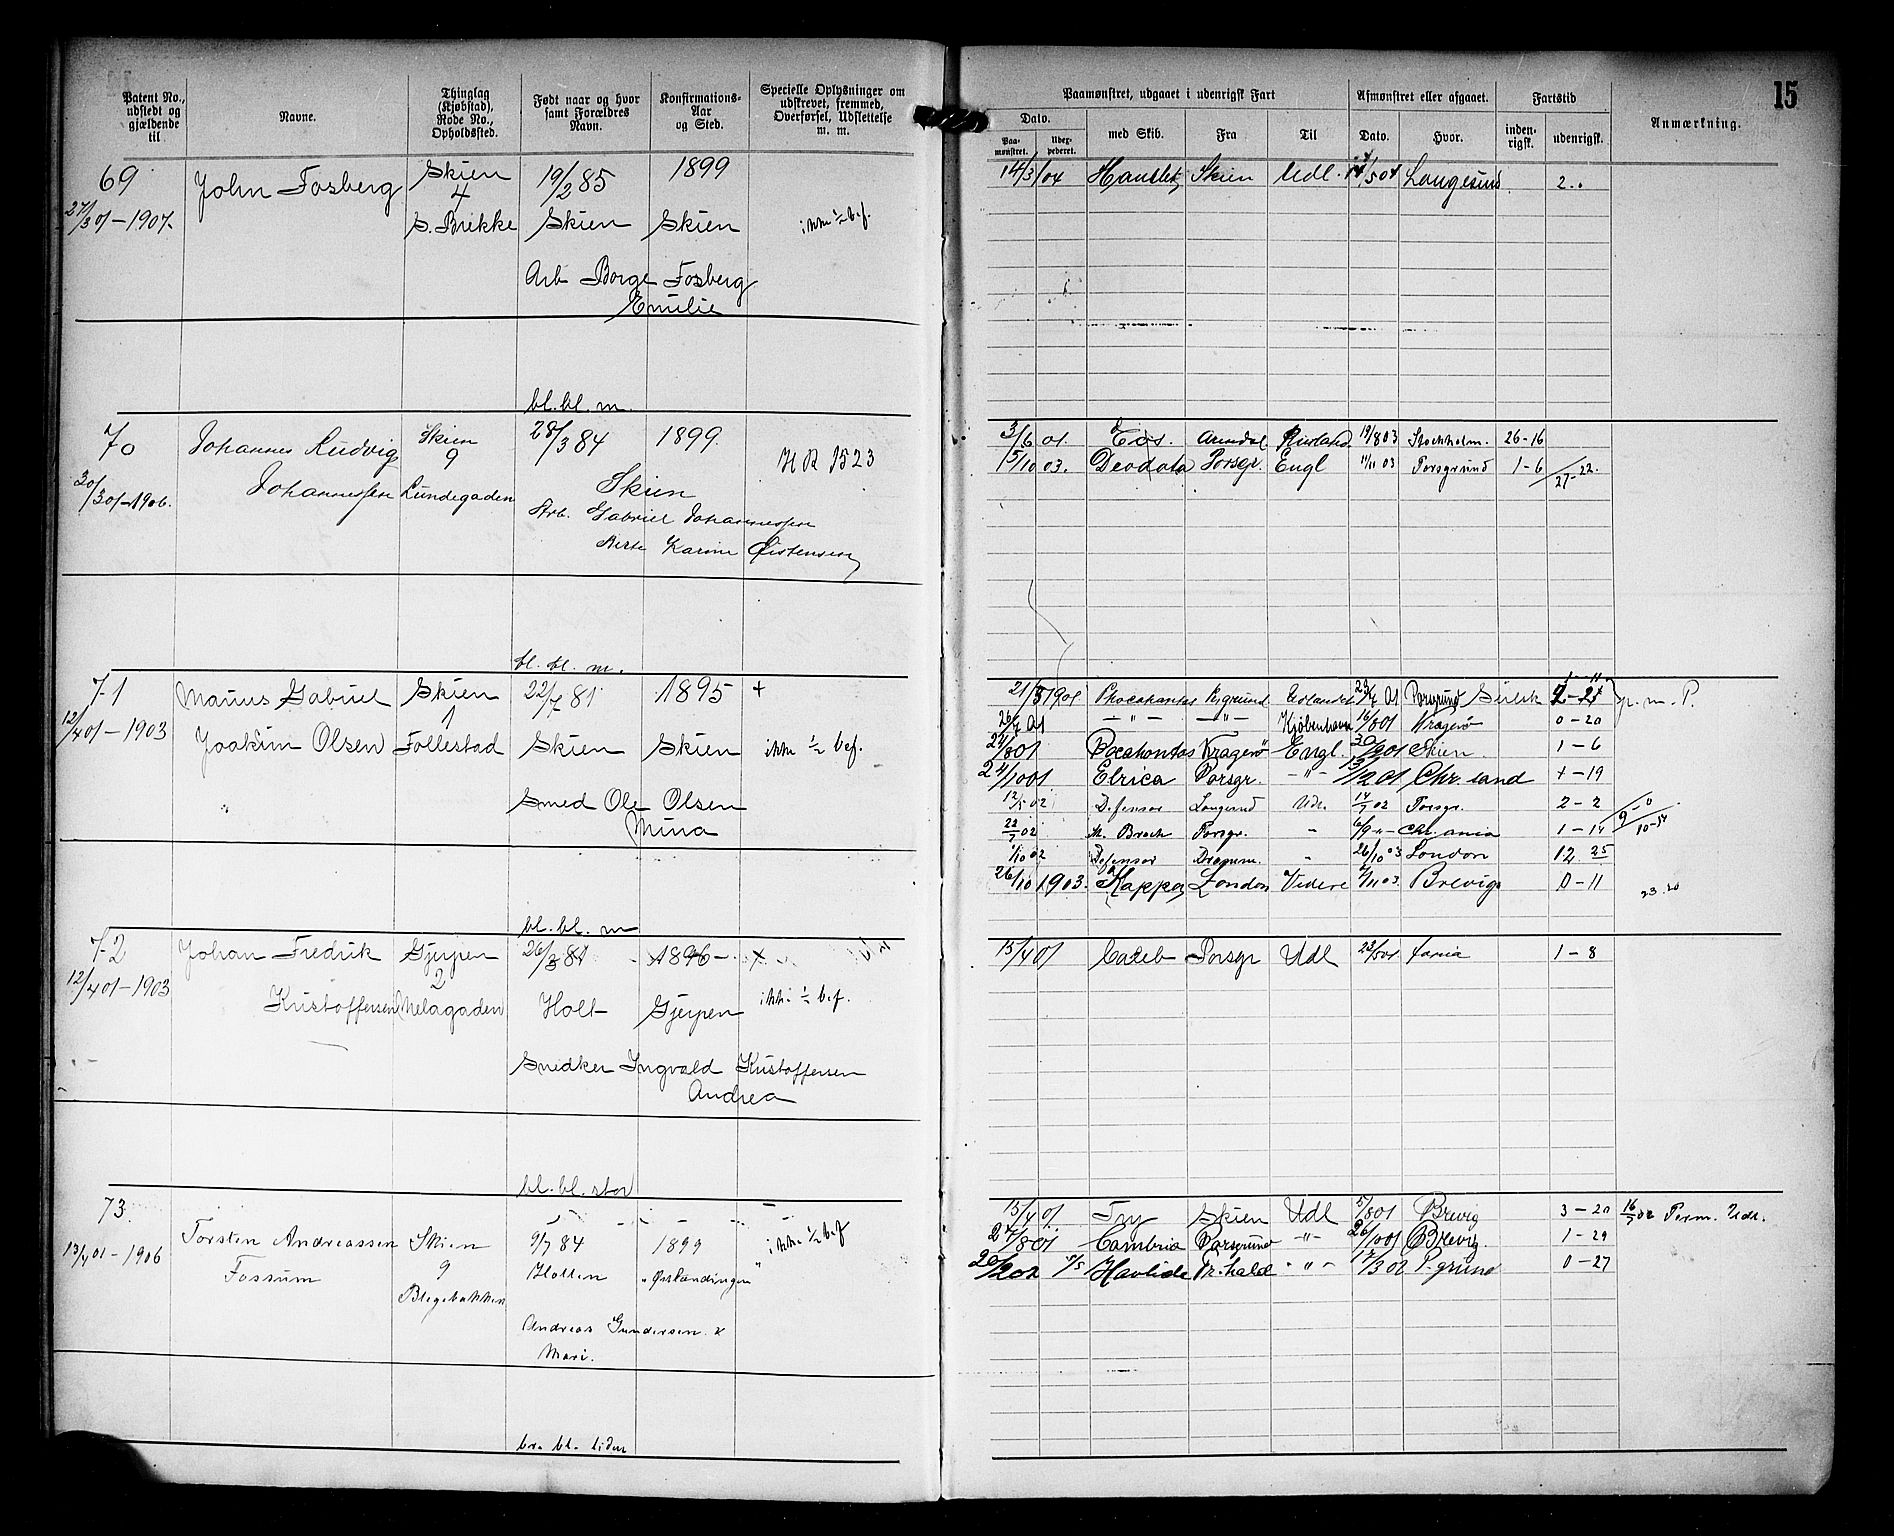 15
Patent No., udstedt og gjældende til
Navne.
Thinglag (Kjøbstad), Rode No., Opholdssted.
Født naar og hvor samt Forældres Navn.
Konfirmations-Aar og Sted.
Specielle Oplysninger om udskrevet, fremmed, Overførsel, Udslettelse m. m.
Paamønstret, udgaaet i udenrigsk Fart
Dato.
Paa-mønstret.
med Skib.
Fra
Til
Afmønstret eller afgaaet.
Dato.
Hvor.
Fartstid
inden-rigsk.
udenrigsk.
Anmærkning.
69 John Fosberg Skien 19/2 85 1899
27/3 01-1907. 4
S. Brekke Skien Skien ikke ½ bef.
Arb Borge Fosberg
Emilie
bl. bl. m.
14/3 04 Skien Udl. Langesund 2..
70 Johannes Ludvig Skien 28/3 84 1899 HR 1523
30/3 01-1906. Johannessen 9 Lundegaden Skien
Arb. Gabriel Johannessen
Berte Karine Østensen
bl. bl. m.
3/6 01. Eos. Arendal Rusland 19/8 03 Stockholm. 26-16
15/10 03. Deodata Porsgr. Engl 11/11 03 Porsgrund 1-6 27-22.
71 Marius Gabriel Skien 22/7 81 1895 +
12/4 01-1903 Joakim Olsen 1 Follestad Skien Skien ikke ½ bef.
Smed Ole Olsen
Mina
bl. bl. m
21/5 1901 Phocahontas Pgrund Porsgrund
-"- -"- Kjøbenhavn 16/8 01 Kragerø 0-20
24/8 01 Pocahontas Kragerø Engl. 30/9 01 Skien 1-6
24/10 01 Elrica Porsgr. -"- 13/12 01 Chr. sand +-19
12/5 02 Defensor Langesund Udl. 14/7 02 Porsgr. 2-2
22/7 02 M. Brock Porsgr. " 6/9 -"- Chr. ania 1-14
1/10 02 Defensor Dramm. " 26/10 03 London 12 25
26/10 1903. Kappa London Videre 7/11 03 Brevig 0-11 23-20
72 Johan Fredrik Gjerpen 26/3 81 1896 X
12/4 01-1903 Kristoffersen 2 Melagaden Holt Gjerpen ikke ½ bef.
Snedker Ingvald Kristoffersen
Andrea
bl. bl. stor
15/4 01 Caleb Porsgr Udl 23/5 01 1-8
73.
13/4 01-1906 Torsten Andreassen Skien 9/7 84 1899 ikke ½ bef
Fossum 9 Holten
Blegebakken
Andreas Gundersen &
Mari.
br. bl. liden
15/4 01. Fry Skien Udl 5/8 01 Brevig 3-20 16/7 02 Perm. Udl.
27/8 01 Cambria Porsgrund -"- 26/10 01 Brevig. 1-29
20/2 02 Havlide Fr. hald -"- 17/3 02 P.grund 0-27